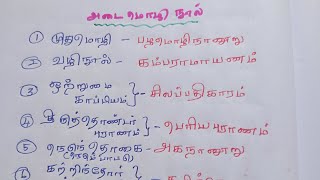 அடைமொழி நூல்
① முதுமொழி - பழமொழிநானூறு
② வழிநூல் - கம்பராமாயணம்
③ ஒற்றுமை காப்பியம் } - சிலப்பதிகாரம்
④ திருத்தொண்டர் புராணம் } - பெரியபுராணம்
⑤ நெடுந்தொகை - அகநானூறு
கற்றிந்தோர்